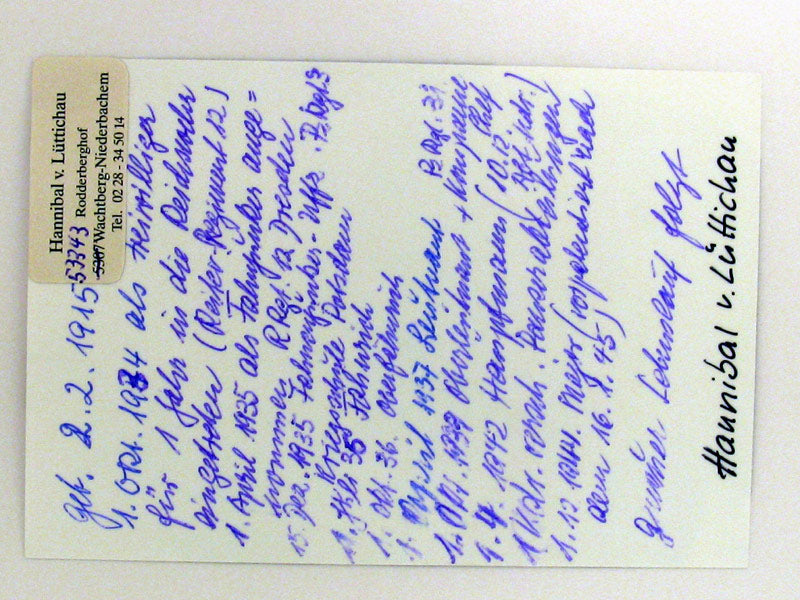 Hannibal v. Lüttichau
Rodderberghof
53343
5307 Wachtberg-Niederbachem
Tel. 02 28 - 34 50 14
geb. 2.2.1915
1. Okt. 1934 als Freiwilliger
für 1 Jahr in die Reichswehr
eingetreten (Reiter-Regiment 12)
1. April 1935 als Fahnjunker ange=
nommen R Regt 12 Dresden
15. Dez. 1935 Fahnenjunker-Uffz. Pz. Regt 3
Kriegsschule Potsdam
Fähnrich
1. Okt. 36. Oberfähnrich
1. April 1937 Leutnant Pz Rgt. 31
1. Okt. 1939 Oberleutnant + Kompanie
1. 4. 1942 Hauptmann (10.12 Chef
1 Kdr. versch. Panzerabteilungen
1.12 1944. Major (vorpatentiert nach
dem 16.1.45)
Lebenslauf folgt
Hannibal v. Lüttichau